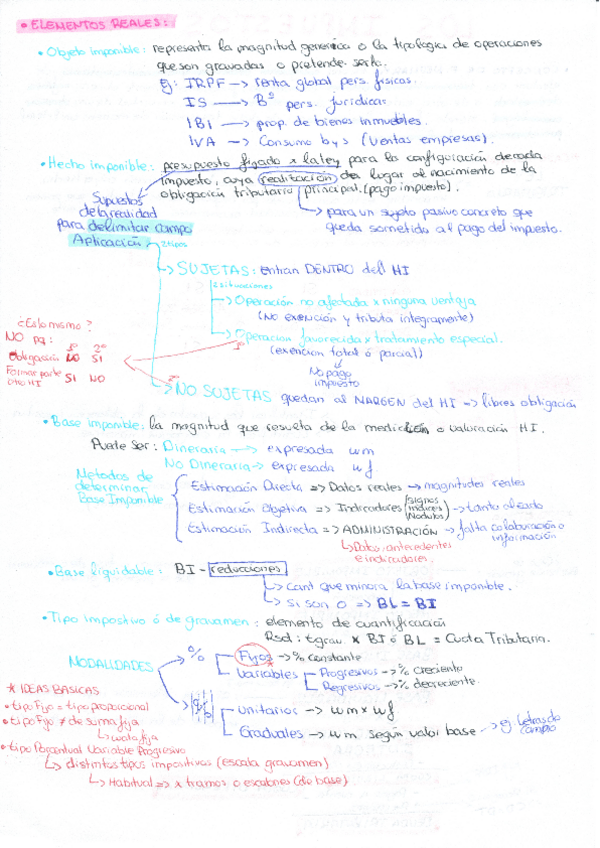 • ELEMENTOS REALES:
• Objeto imponible: representa la magnitud generica o la tipologia de operaciones
que son gravadas o pretende serlo.
Ej: IRPF → renta global pers. fisicas.
IS → Bº pers. juridicas
IBI → prop. de bienes inmuebles.
IVA → Consumo b y s (ventas empresas).
• Hecho imponible: presupuesto fijado x la ley para la configuración de cada
impuesto, cuya realización da lugar al nacimiento de la
obligación tributaria principal. (pago impuesto).
Supuestos
de la realidad
para delimitar campo
Aplicación
→ para un sujeto pasivo concreto que
queda sometido al pago del impuesto.
2 tipos
→ SUJETAS: entran DENTRO del HI
2 situaciones
→ Operación no afectada x ninguna ventaja
(No exención y tributa integramente)
→ Operacion favorecida x tratamiento especial.
(exención total ó parcial)
No pago
impuesto
¿Es lo mismo?
NO pq: 1º 2º
Obligación NO SI
Formar parte
otro HI SI NO
1º
2º
→ NO SUJETAS quedan al MARGEN del HI → libres obligación
• Base imponible: la magnitud que resulta de la medición o valoración HI.
Puede ser: Dineraria → expresada um
NO Dineraria → expresada uf
Metodos de
determinar
Base Imponible
Estimación Directa => Datos reales → magnitudes reales
Estimación Objetiva => Indicadores (signos indices Modulos) → tanto alzado
Estimación Indirecta => ADMINISTRACIÓN → falta colaboración o
información
↳ Datos: antecedentes
e indicadores.
• Base liquidable: BI - reducciones
→ Cant que minora la base imponible.
→ Si son 0 => BL = BI
• Tipo impositivo ó de gravamen: elemento de cuantificación
Rsd: t grav. x BI ó BL = Cuota Tributaria.
MODALIDADES
%
Fijos → % constante
Variables
Progresivos → % creciente
Regresivos → % decreciente.
Unitarios → um x uf
Graduales → um según valor base → ej. Letras de
cambio
* IDEAS BASICAS
• tipo Fijo = tipo proporcional
• tipo Fijo ≠ de suma fija
↳ cuota fija
• tipo Porcentual Variable Progresivo
↳ distintos tipos impositivos (escala gravamen)
↳ Habitual => x tramos o escalones (de base)